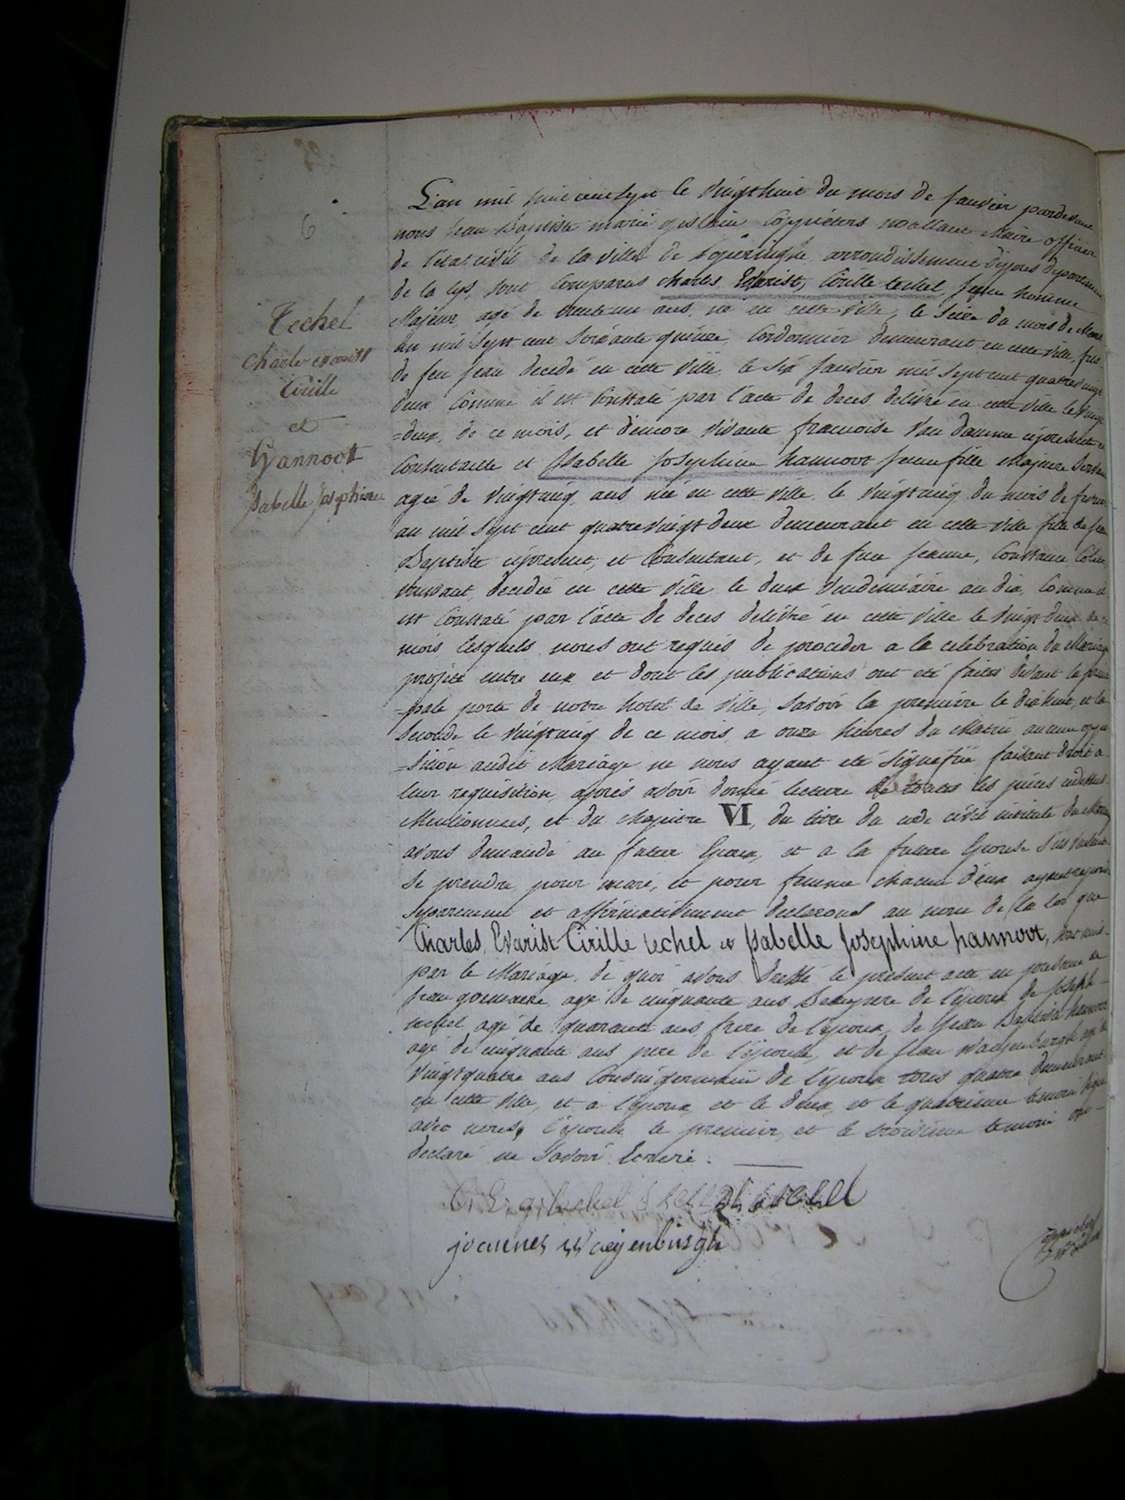 6
Techel
Charles Evarist
Cirille
et
Hannoot
Isabelle Josephine
L'an mil huit cent sept le vingt huit du mois de Janvier pardevant
nous Jean Baptiste marie gislain Maire officier
de l'état civil de la ville de Poperinghe, arrondissement d'ypres departement
de la Lys, sont comparus Charles Evarist, Cirille techel Jeune homme
Majeur agé de trente un ans, né en cette Ville, le du mois de
an mil sept cent soixante quinze, Cordonnier demeurant en cette ville, fils
de feu Jean decedé en cette Ville le six Janvier mil sept cent quatre vingt
deux comme il est constaté par l'acte de deces delivré en cette Ville le vingt
=deux, de ce mois, et d'encore vivante francoise Van Damme ci presente et
Consentante et Isabelle Josephine hannoot Jeune fille Majeure
agée de vingt cinq ans née en cette ville le vingt cinq du mois de
an mil sept cent quatre vingt deux demeurant en cette Ville fille de Jean
Baptiste ci present, et Consentant, et de feue Jeanne, Constance
decedée en cette Ville le deux Vendemiaire an dix, comme il
est Constaté par l'acte de deces delivré en cette Ville le vingt deux de ce
mois lesquels nous ont requis de proceder a la celebration du Mariage
projeté entre eux et dont les publications ont eté faites devant la princi
=pale porte de notre hotel de Ville, savoir la premiere le dix huit, et la
seconde le vingt cinq de ce mois a onze heures du Matin aucune oppo
=sition audit Mariage ne nous ayant eté signifiée faisant droit a
leur requisition, après avoir donné lecture de toutes les pièces
Mentionnées, et du chapitre VI, du titre du code civil intitulé du Mariage
avons demandé au futur Epoux, et a la future Epouse s'ils veulent
se prendre pour mari, et pour femme chacun d'eux ayant repondu
separement et affirmativement declarons au nom de la loi que
Charles, Evarist Cirille techel et Isabelle Josephine hannoot, sont unis
par le Mariage, de quoi avons dressé le present acte en presence de
Jean agé de cinquante ans de l'epoux de Joseph
techel agé de quarante ans frere de l'epoux, de Jean Baptiste hannoot
agé de cinquante ans pere de l'epouse, et de Jean Waeyenburghe agé de
vingt quatre ans Cousin germain de l'epoux tous quatre demeurant
en cette Ville, et a l'epoux et le deux et le quatrieme temoin signé
avec nous, l'epouse le premier, et le troisieme temoin ont
declaré ne savoir Ecrire.
joannes Waeyenburghe